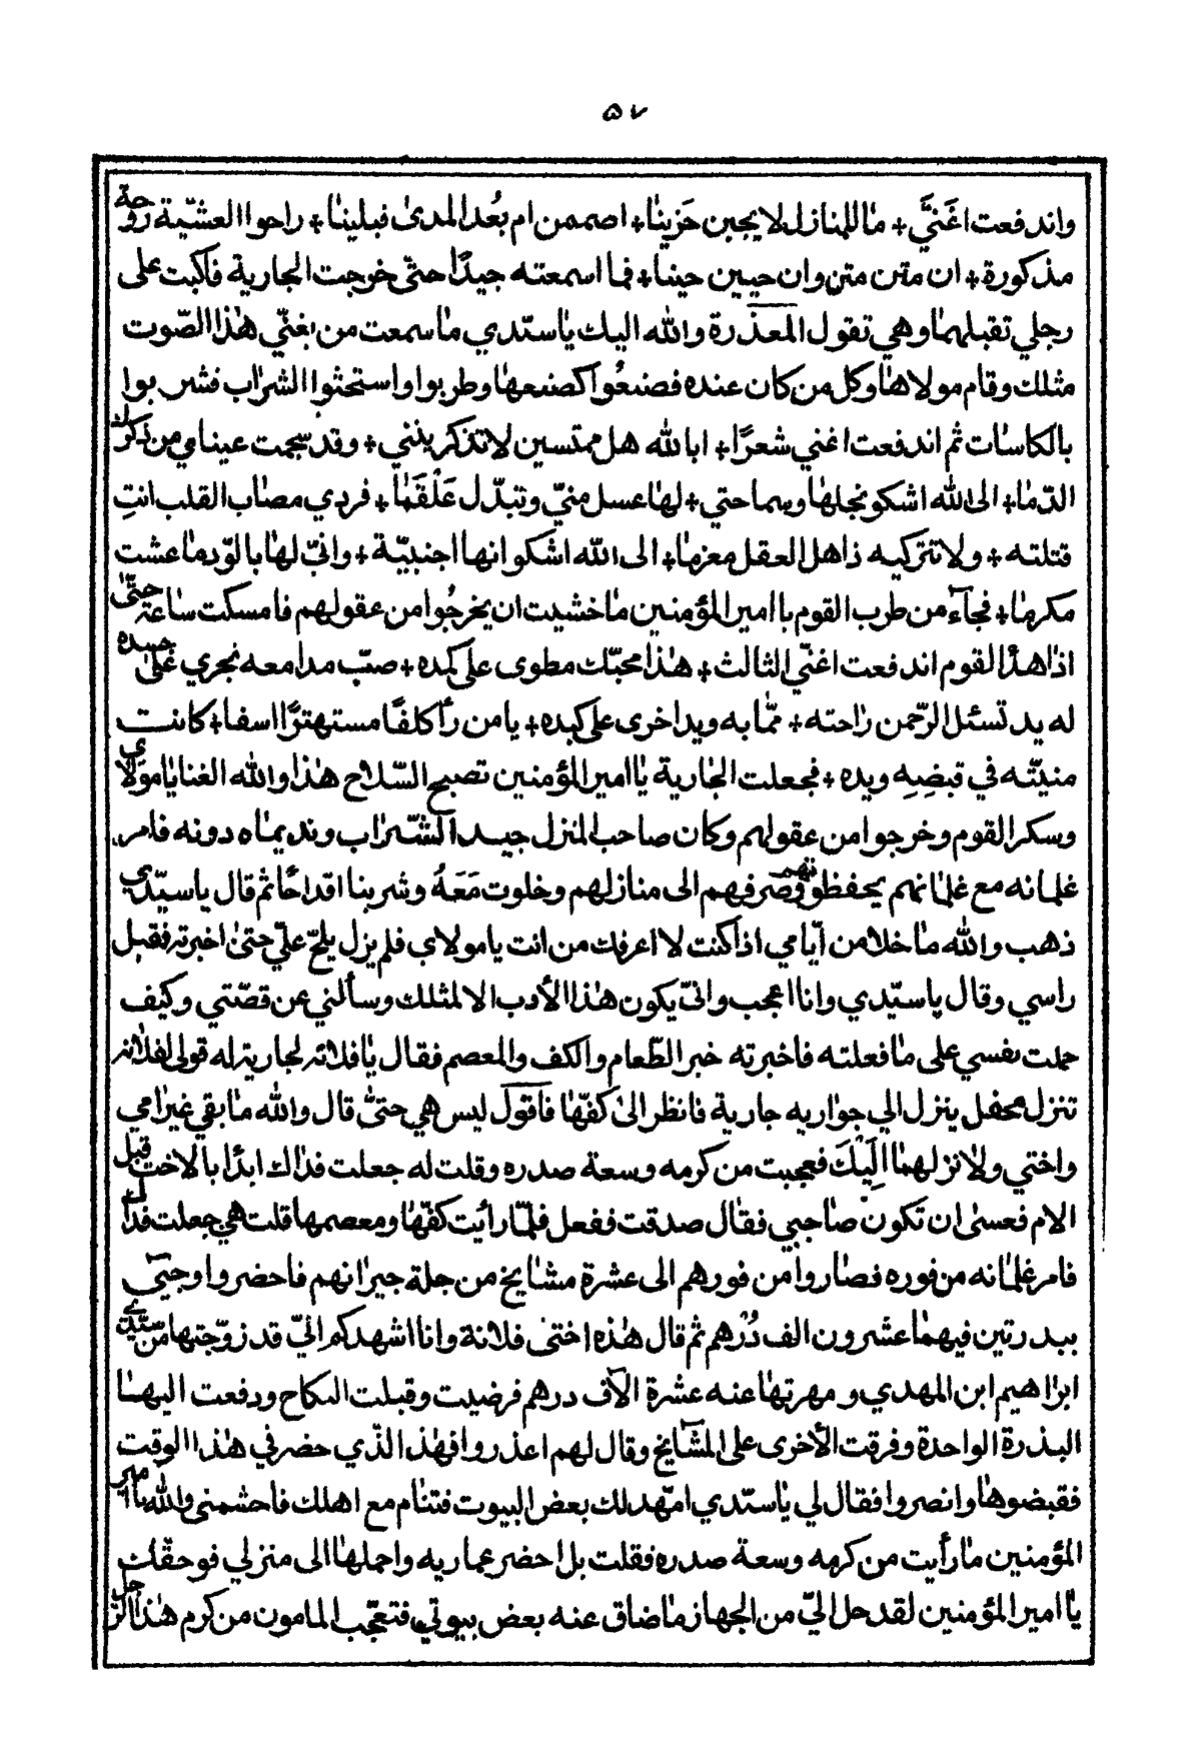 ٥٧
واندفعت اغَنيَّ + مٰا للمنازل لا يجبن حَزينٰا + اصممن ام بُعد المدىٰ فبلينٰا + راحوا العشيّة رَوحة
مذكورة + ان متن متن وان حيين حينا + فما اسمعته جيدًا حتّى خرجت الجارية فاكبت على
رجلي تقبلهمٰا وهي تقول المعذرة والله اليك يٰا سيّدي مٰا سمعت من يغنّي هٰذا الصّوت
مثلك وقام مولاهٰا وكل من كان عنده فصنعُوا كصنعهٰا وطربوا واستحثوا الشرٰاب فشربوا
بالكاسٰات ثم اندفعت اغني شعرًا + ابا لله هل ممتسين لا تذكرينني + وقد سجمت عينٰامي من ذكرك
الدّمٰا + الى الله اشكو نجلهٰا وسماحتي + لهٰا عسل منيّ وتبدّل عَلْقَمٰا + فردي مصٰاب القلب انتِ
قتلته + ولا تتركيه ذاهل العقل مغرمٰا + الى الله اشكو انها اجنبيّة + وانيّ لهٰا بالودّ مٰا عشت
مكرمٰا + فجٰاءَ من طرب القوم يا امير المؤمنين مٰا خشيت ان يخرجُوا من عقولهم فامسكت سٰاعة حتّٰى
اذٰا هدٔا القوم اندفعت اغنّي الثالث + هٰذا محبّك مطوى على كمده + صبّ مدامعه تجري عَلىٰ جسده
له يد تسئل الرّحمن رٰاحته + ممّٰا به ويد اخرى على كبده + يا من رأ كلفًا مستهترًا اسفا + كانت
منيّته في قبضِهِ ويده + فجعلت الجٰارية يٰا امير المؤمنين تصيح السّلاح هٰذا والله الغنا يٰا مولاي
وسكر القوم وخرجوا من عقولهم وكان صاحب المنزل جيد الشّرٰاب ونديمٰاه دونه فامر
غلمانه مع غلمٰانهم يحفظونهم وصرفهم الى منازلهم وخلوت مَعَهُ وشربنا اقداحًا ثم قال يا سيّدي
ذهب والله مٰا خلا من أيّٰامي اذ كنت لا اعرفك من انت يا مولاي فلم يزل يلحّ عليّ حتىٰ اخبرته فقبل
راسي وقال يا سيّدي وانا اعجب وانيّ يكون هٰذا الأدب الا لمثلك وسألني عن قصّتي وكيف
حملت نفسي على مٰا فعلته فاخبرته خبر الطّعام والكف والمعصم فقال يٰا فلانة لجارية له قولى لفلانة
تنزل فجعل ينزل الي جوٰاريه جارية فانظر الىٰ كفّهٰا فاقول ليس هي حتىّٰ قال والله مٰا بقي غير امي
واختي ولٰا نزلهمٰا الَيْكَ فعجبت من كرمه وسعة صدره وقلت له جعلت فدٰاك ابدًا بالاخت قبل
الام فعسىٰ ان تكون صٰاحبي فقٰال صدقت ففعل فلمّٰا رأيت كفّهٰا ومعصمهٰا قلت هي جعلت فدٰاك
فامر غلمٰانه من فوره فصٰاروا من فورهم الى عشرة مشٰايخ من جلة جيرٰانهم فاحضروا وجيَٓئ
ببدرتين فيهمٰا عشرون الف دُرهم ثم قال هٰذه اختىٰ فلانة وانا اشهدكم انيّ قد زوّجتهٰا من سيّدي
ابرٰاهيم ابن المهدي و مهرتهٰا عنه عشرة الاٰف درهم فرضيت وقبلت النكاح ودفعت اليهٰا
البذرة الواحدة وفرقت الأخرى على المشٰايخ وقال لهم اعذروا فهٰذا الذّي حضر في هٰذا الوقت
فقبضوهٰا وانصروا فقال لي يٰا سيّدي امهّد لك بعض البيوت فتنٰام مع اهلك فاحشمني والله يٰا امير
المؤمنين مٰا رأيت من كرمه وسعة صدره فقلت بل احضر عماريه واحملهٰا الى منزلي فو حقّك
يٰا امير المؤمنين لقد حمل اليّ من الجهاز مٰا ضاق عنه بعض بيوتي فتعجّب المامون من كرم هٰذا الرّجل